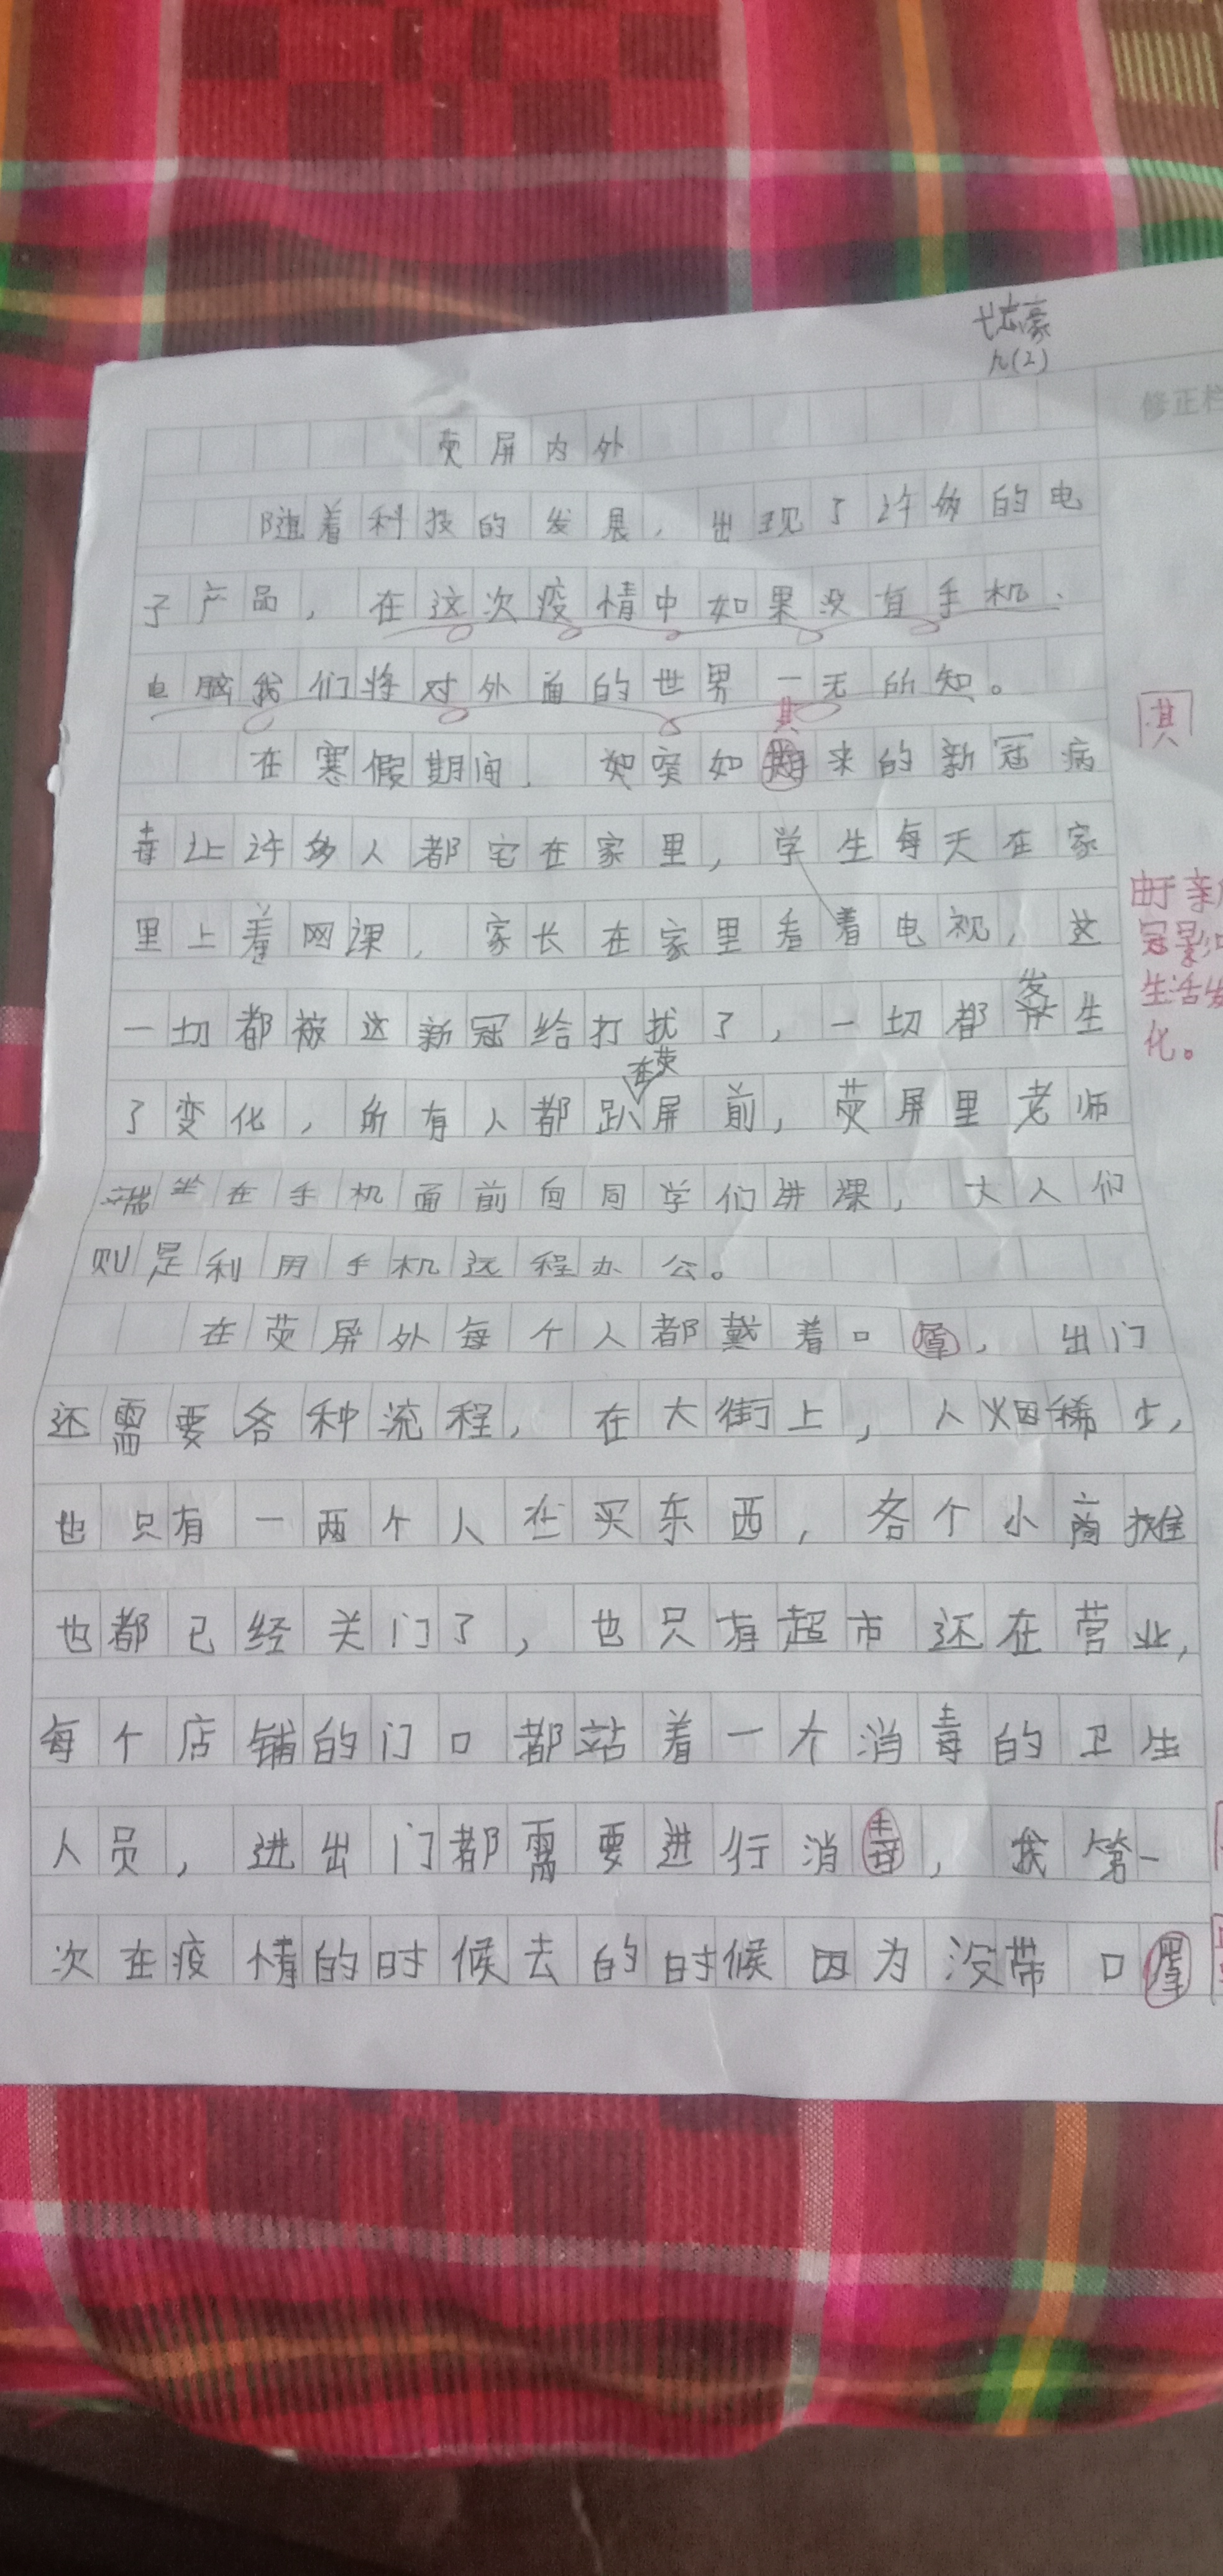 九(2)
修正栏
荧屏内外
随着科技的发展，出现了许多的电
子产品，在这次疫情中如果没有手机、
电脑我们将对外面的世界一无所知。
其
其
在寒假期间，突如来的新冠病
毒让许多人都宅在家里，学生每天在家
里上着网课，家长在家里看着电视，这
由于亲
冠影
生活发
化。
一切都被这新冠给打扰了，一切都发生
了变化，所有人都趴在荧屏前，荧屏里老师
端坐在手机面前向同学们讲课，大人们
则是利用手机远程办公。
在荧屏外每个人都戴着口罩，出门
还需要各种流程，在大街上，人烟稀少，
也只有一两个人在买东西，各个小商摊
也都已经关门了，也只有超市还在营业，
每个店铺的门口都站着一个消毒的卫生
人员，进出门都需要进行消毒，我第一
次在疫情的时候去的时候因为没带口罩